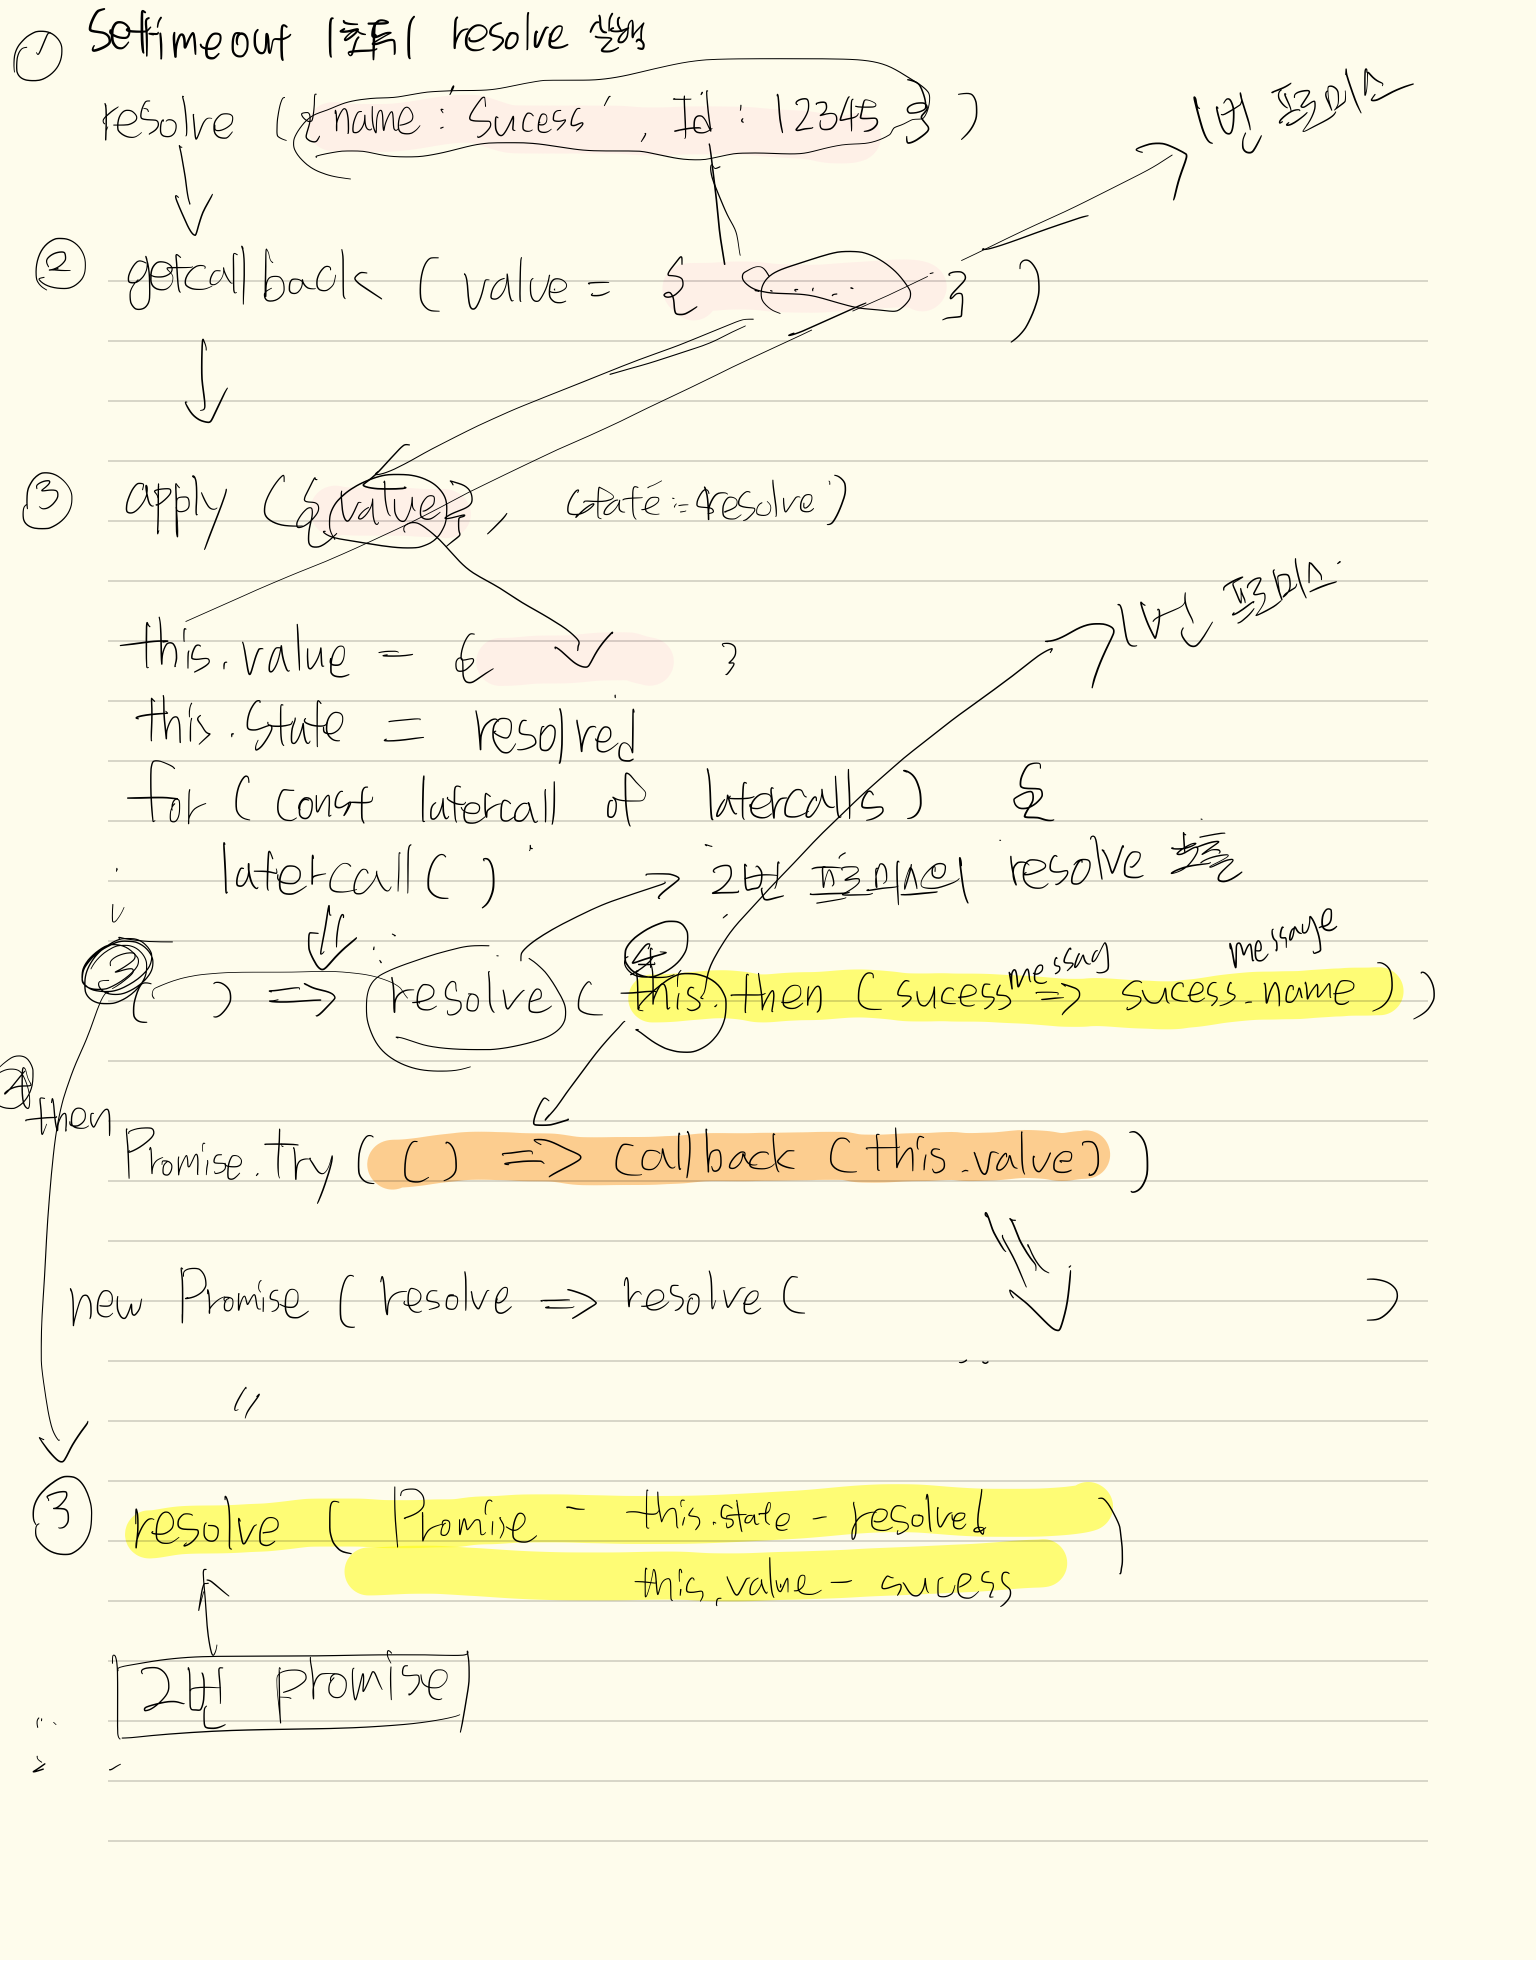 ① Settimeout 1초뒤 resolve 실행
resolve ({name : 'Sucess', Id : 12345 })
1번 프로미스
② getcallback ( value = { ...... } )
③ apply ({value}, state = resolve )
this.value = { }
1번 프로미스
this.state = resolved
for ( const latercall of latercalls ) {
latercall ( )
2번 프로미스의 resolve 호출
③ ( ) => resolve ( this.then ( sucess => sucess.name ) )
④
messag message
④ then
Promise.try ( ( ) => callback ( this.value ) )
new Promise ( resolve => resolve ( )
"
③ resolve ( Promise - this.state - resolved )
this.value - sucess
2번 promise